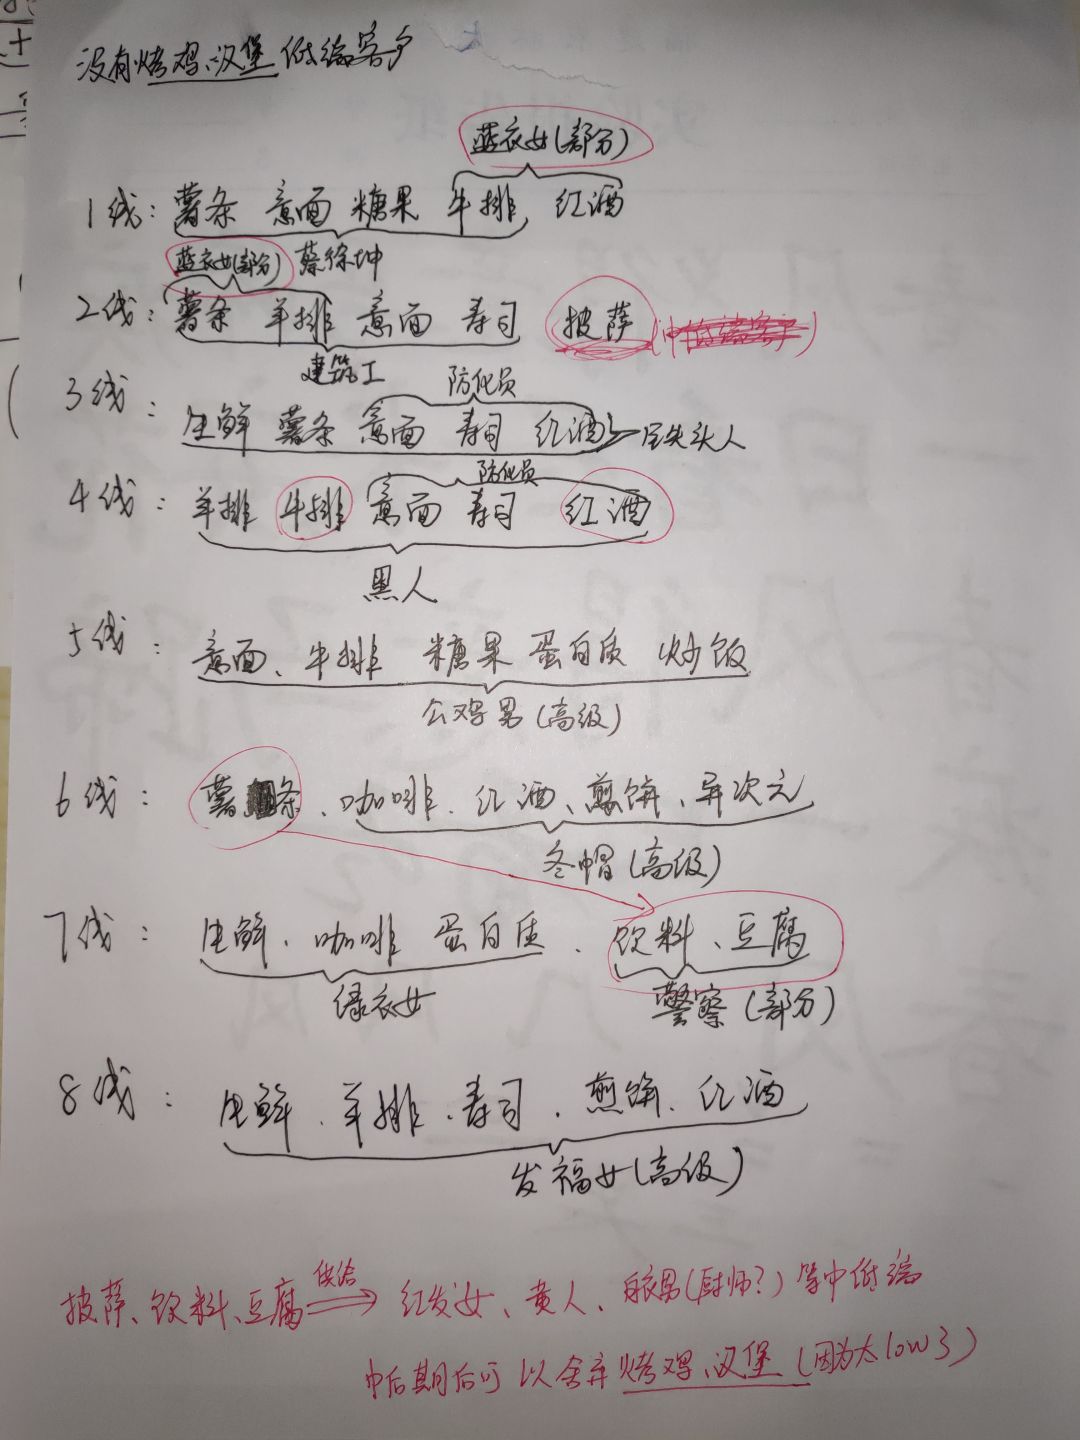 没有烤鸡、汉堡 低端客户
蓝衣女(部分)
1线: 薯条 意面 糖果 牛排 红酒
蓝衣女(部分) 蔡徐坤
2线: 薯条 羊排 意面 寿司 披萨
建筑工 防化员
3线: 生鲜 薯条 意面 寿司 红酒 头人
防化员
4线: 羊排 牛排 意面 寿司 红酒
黑人
5线: 意面、牛排 糖果 蛋白质 炒饭
公鸡男(高级)
6线: 薯条、咖啡、红酒、煎饼、异次元
冬帽(高级)
7线: 生鲜、咖啡 蛋白质、饮料、豆腐
绿衣女 警察(部分)
8线: 生鲜、羊排、寿司、煎饼、红酒
发福女(高级)
供给
披萨、饮料、豆腐 ⇒ 红发女、黄人、白衣男(厨师?)等中低端
中后期后可以舍弃烤鸡、汉堡(因为太low了)